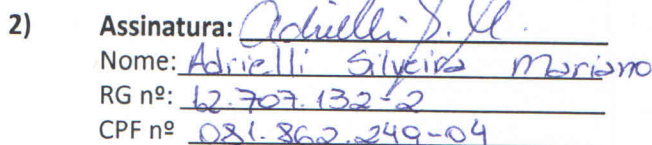 2) Assinatura: Adrielli S. M.
Nome: Adrielli Silveira Mariano
RG nº: 12.707.132-2
CPF nº 081.862.249-04